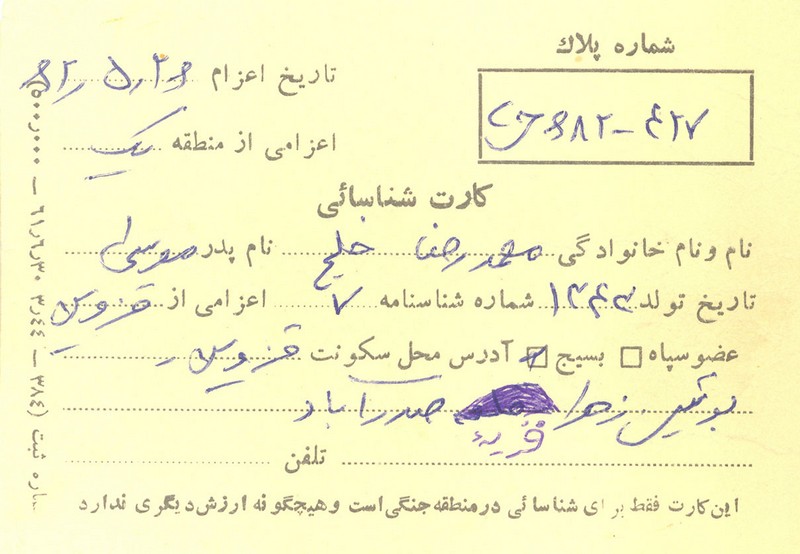 شماره پلاك
تاریخ اعزام ۶۲ر۵ر۲۶
اعزامی از منطقه یک
کارت شناسائی
نام ونام خانوادگی محمدرضا خلج نام پدر موسی
تاریخ تولد شماره شناسنامه ۷ اعزامی از قزوین
عضو سپاه □ بسیج ☑ آدرس محل سکونت قزوین
بوئین زهرا قریه صدرآباد
تلفن
این کارت فقط برای شناسائی در منطقه جنگی است و هیچگونه ارزش دیگری ندارد